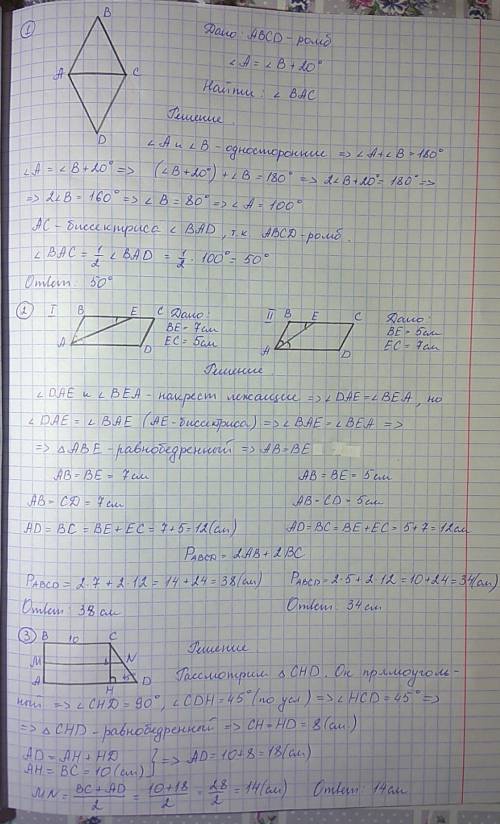 ① B
Дано: ABCD - ромб
∠A = ∠B + 20°
A C
Найти: ∠BAC
D
Решение.
∠A и ∠B - односторонние => ∠A + ∠B = 180°
∠A = ∠B + 20° => (∠B + 20°) + ∠B = 180° => 2∠B + 20° = 180° =>
=> 2∠B = 160° => ∠B = 80° => ∠A = 100°
AC - биссектриса ∠BAD, т.к. ABCD - ромб.
∠BAC = 1/2 ∠BAD = 1/2 · 100° = 50°
Ответ: 50°
② I B E C Дано: II B E C Дано:
BE = 7см BE = 5см
EC = 5см EC = 7см
A D A D
Решение
∠DAE и ∠BEA - накрест лежащие => ∠DAE = ∠BEA, но
∠DAE = ∠BAE (AE - биссектриса) => ∠BAE = ∠BEA =>
=> △ABE - равнобедренный => AB = BE
AB = BE = 7см AB = BE = 5см
AB = CD = 7см AB = CD = 5см
AD = BC = BE + EC = 7 + 5 = 12(см) AD = BC = BE + EC = 5 + 7 = 12см
PABCD = 2AB + 2BC
PABCD = 2·7 + 2·12 = 14 + 24 = 38(см) PABCD = 2·5 + 2·12 = 10 + 24 = 34(см)
Ответ: 38см Ответ: 34см
③ B 10 C
Решение.
M N
A H 45° D
Рассмотрим △CHD. Он прямоуголь-
ный => ∠CHD = 90°, ∠CDH = 45° (по усл) => ∠HCD = 45° =>
=> △CHD - равнобедренный => CH = HD = 8(см)
AD = AH + HD
AH = BC = 10(см) } => AD = 10 + 8 = 18(см)
MN = (BC + AD)/2 = (10 + 18)/2 = 28/2 = 14(см) Ответ: 14см